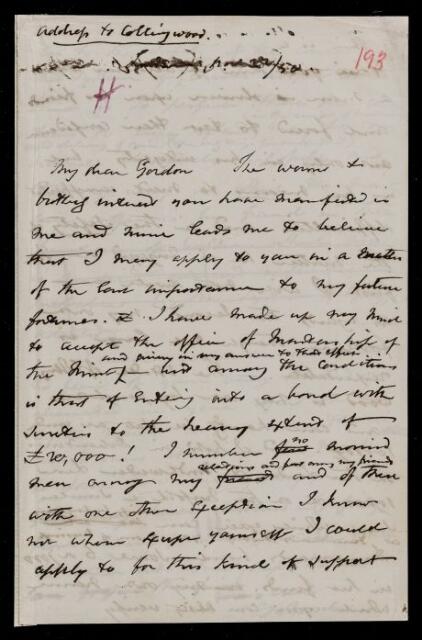 Address to Collingwood...
193
H
My dear Gordon The warm &
brotherly interest you have manifested in
me and mine leads me to believe
that I may apply to you in a matter
of the last importance to my future
fortunes. I have made up my mind
to accept the office of Mastership of
and given in my answer to that effect
the Mint but among the conditions
is that of entering into a bond with
sureties to the heavy extent of
£ 20,000! I number no monied
relations and few among my friends
men among my and of these
with one other exception I know
not whom except yourself I could
apply to for this kind of support